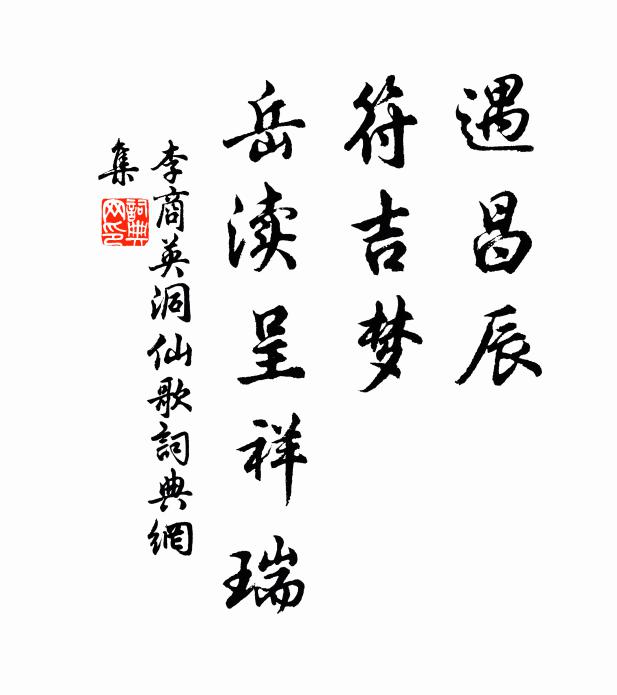 遇昌辰
符吉梦
岳渎呈祥瑞
李商英洞仙歌詞典網
集
詞典
网印